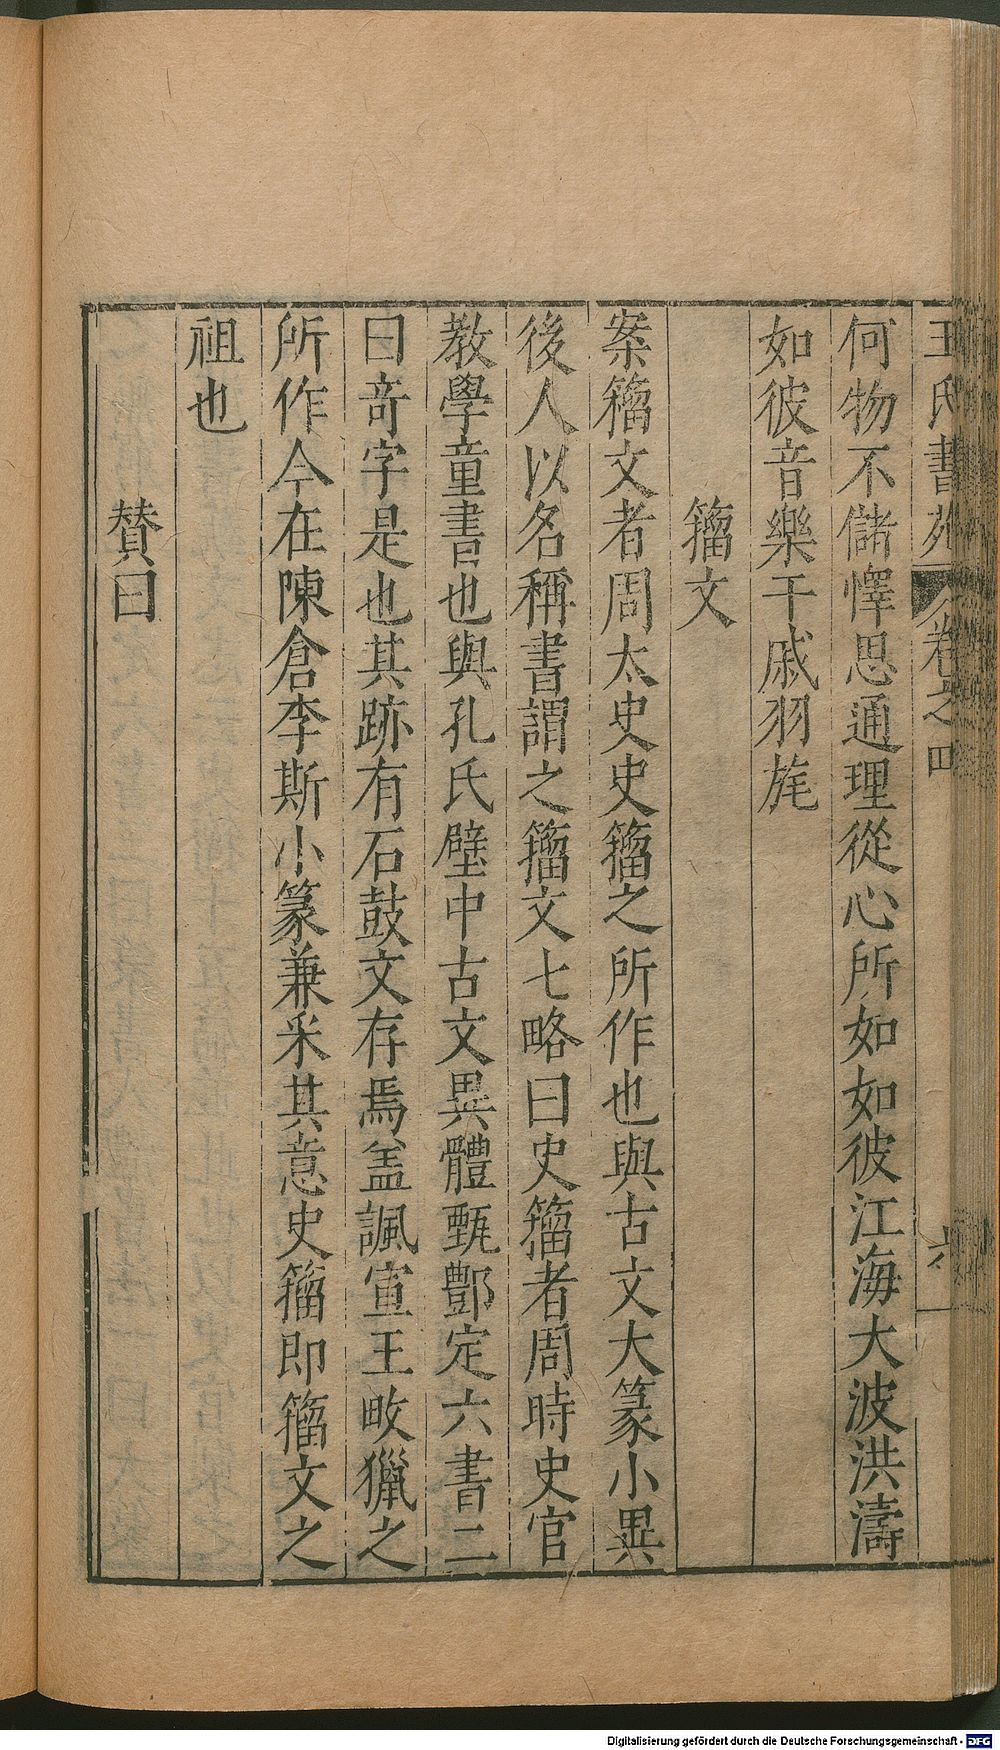 王氏書苑 卷之四 六
何物不儲懌思通理從心所如如彼江海大波洪濤
如彼音樂干戚羽旄
籀文
案籀文者周太史史籀之所作也與古文大篆小異
後人以名稱書謂之籀文七略曰史籀者周時史官
教學童書也與孔氏壁中古文異體甄酆定六書二
曰竒字是也其跡有石鼓文存焉盖諷宣王畋獵之
所作今在陳倉李斯小篆兼采其意史籀即籀文之
祖也
賛曰
Digitalisierung gefördert durch die Deutsche Forschungsgemeinschaft - DFG